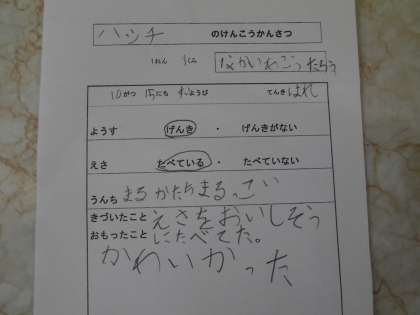 ハッチ のけんこうかんさつ
1ねん 3くみ
10がつ 15にち すいようび てんき はれ
ようす げんき ・ げんきがない
えさ たべている ・ たべていない
うんち まる かたち まるっこい
きづいたこと えさをおいしそう
おもったこと にたべてた。
かわいかった